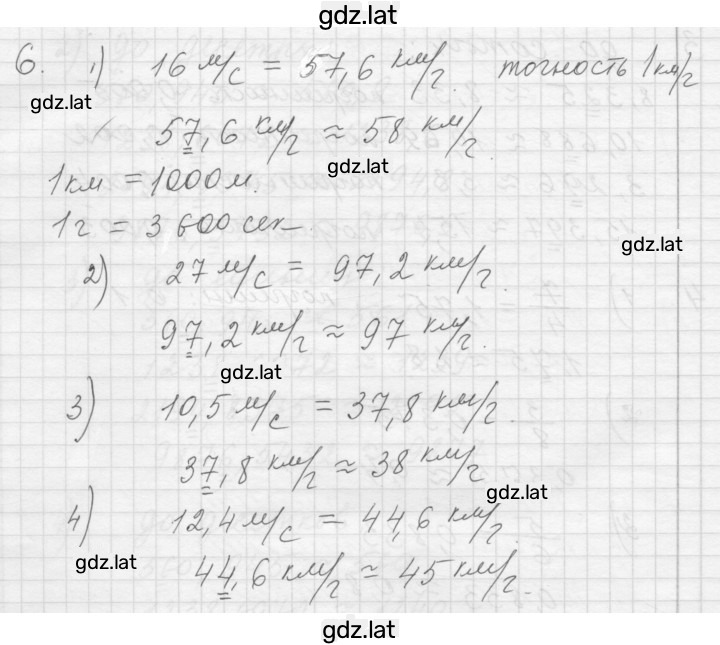 gdz.lat
6. 1) 16 м/с = 57,6 км/г. тогность 1 км/г
gdz.lat
57,6 км/г ≈ 58 км/г.
gdz.lat
1 км = 1000 м.
1 г = 3 600 сек.
gdz.lat
2) 27 м/с = 97,2 км/г.
97,2 км/г ≈ 97 км/г.
gdz.lat
3) 10,5 м/с = 37,8 км/г.
37,8 км/г ≈ 38 км/г
gdz.lat
4) 12,4 м/с = 44,6 км/г.
gdz.lat
44,6 км/г ≈ 45 км/г.
gdz.lat